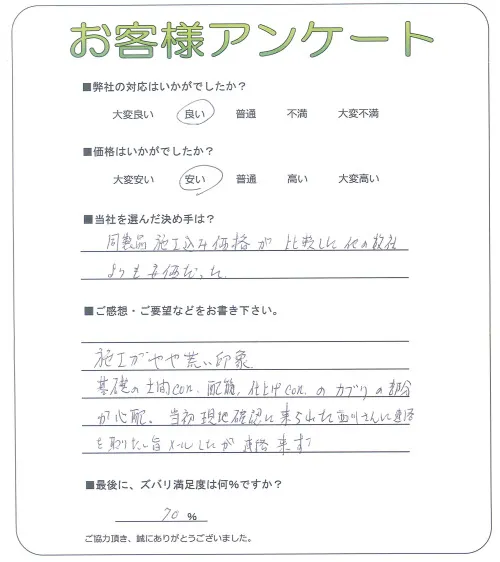 お客様アンケート
■弊社の対応はいかがでしたか？
大変良い 良い 普通 不満 大変不満
■価格はいかがでしたか？
大変安い 安い 普通 高い 大変高い
■当社を選んだ決め手は？
同製品施工込み価格が比較した他の数社
よりも安価だった
■ご感想・ご要望などをお書き下さい。
施工がやや荒い印象
基礎の土間con、配筋、仕上げcon.のカブリの部分
が心配、当初現地確認に来られた西川さんに連絡
を取りたい旨メールしたが 来ず
■最後に、ズバリ満足度は何%ですか？
70 %
ご協力頂き、誠にありがとうございました。